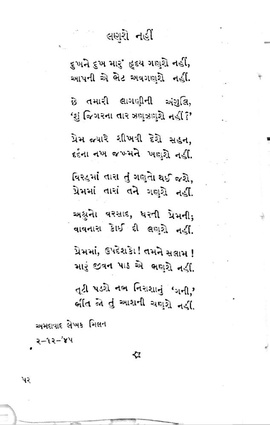 લણશે નહીં
દુઃખને દુખ મારૂં હૃદય ગણશે નહીં,
આપની એ ભેટ અવગણશે નહીં.
છે તમારી લાગણીની અંગુલિ,
‘શું જિગરના તાર ઝણઝણશે નહીં?’
પ્રેમ જ્યારે શીખવી દેશે સહન,
દર્દના નખ જખ્મને ખણશે નહીં.
વિરહમાં તારા તું ગણતો થઈ જશે,
પ્રેમમાં તારાં તને ગણશે નહીં.
અશ્રુનો વરસાદ, ધરતી પ્રેમની;
વાવનારા કાંઈ દી લણશે નહીં.
પ્રેમમાં, ઉપદેશકો! તમને સલામ!
મારું જીવન પાઠ એ ભણશે નહીં.
તૂટી પડશે નભ નિરાશાનું ‘ગની,’
ભીંત જો તું આશાની ચણશે નહીં.
અમદાવાદ લેખક મિલન
૨-૧૨-’૪૫
૫૨